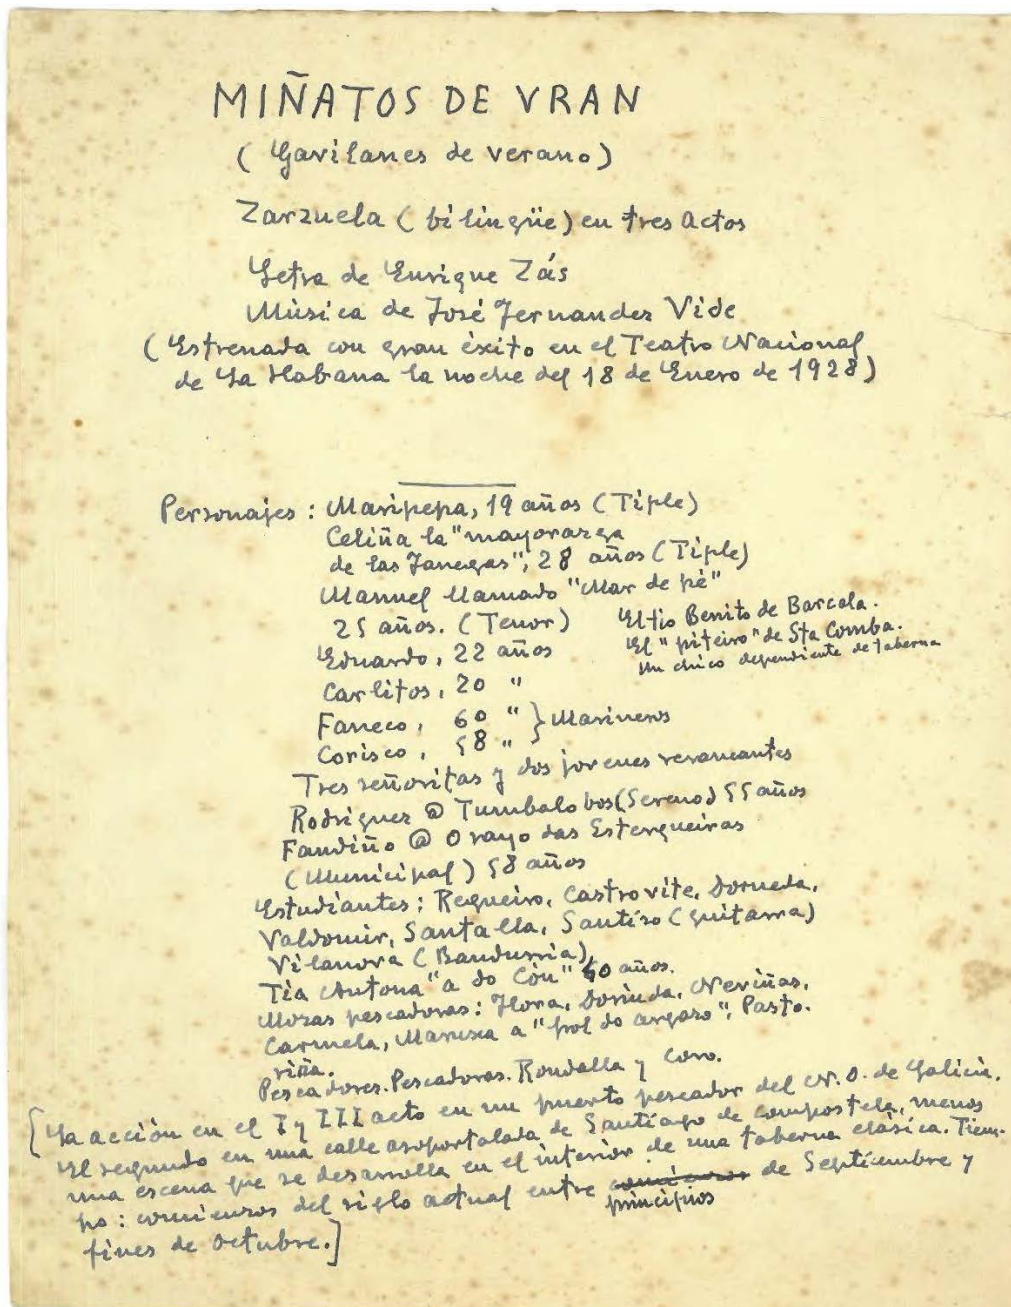 MIÑATOS DE VRAN
(Gavilanes de verano)
Zarzuela (bilingüe) en tres actos
Letra de Enrique Zás
Música de José Fernandez Vide
(Estrenada con gran éxito en el Teatro Nacional
de La Habana la noche del 18 de Enero de 1928)
Personajes: Maripepa, 19 años (Tiple)
Celiña la "mayorazga
de las Fanegas", 28 años (Tiple)
Manuel llamado "Mar de pé"
25 años. (Tenor)
El tio Benito de Barcala.
Eduardo, 22 años
El "piteiro" de Sta Comba.
Un chico dependiente de taberna
Carlitos, 20 "
Faneco, 60 " } Marineros
Corisco, 58 "
Tres señoritas y dos jovenes veraneantes
Rodriguez @ Tumbalobos (Sereno) 55 años
Fandiño @ O rayo das Esterqueiras
(Municipal) 58 años
Estudiantes: Regueiro, Castrovite, Dorneda,
Valdomir, Santalla, Santiso (guitarra)
Vilanova (Bandurria),
Tia Antona "a do Còn" 40 años.
Mozas pescadoras: Flora, Dorinda, Neviñas,
Carmela, Maruxa a "frol do argazo", Pasto-
riña.
Pescadores. Pescadoras. Rondalla y Coro.
[La acción en el I y III acto en un puerto pescador del N.O. de Galicia.
El segundo en una calle asoportalada de Santiago de Compostela, menos
una escena que se desarrolla en el interior de una taberna clásica. Tiem-
po: comienzos del siglo actual entre comienzos de Septiembre y
principios
fines de Octubre.]